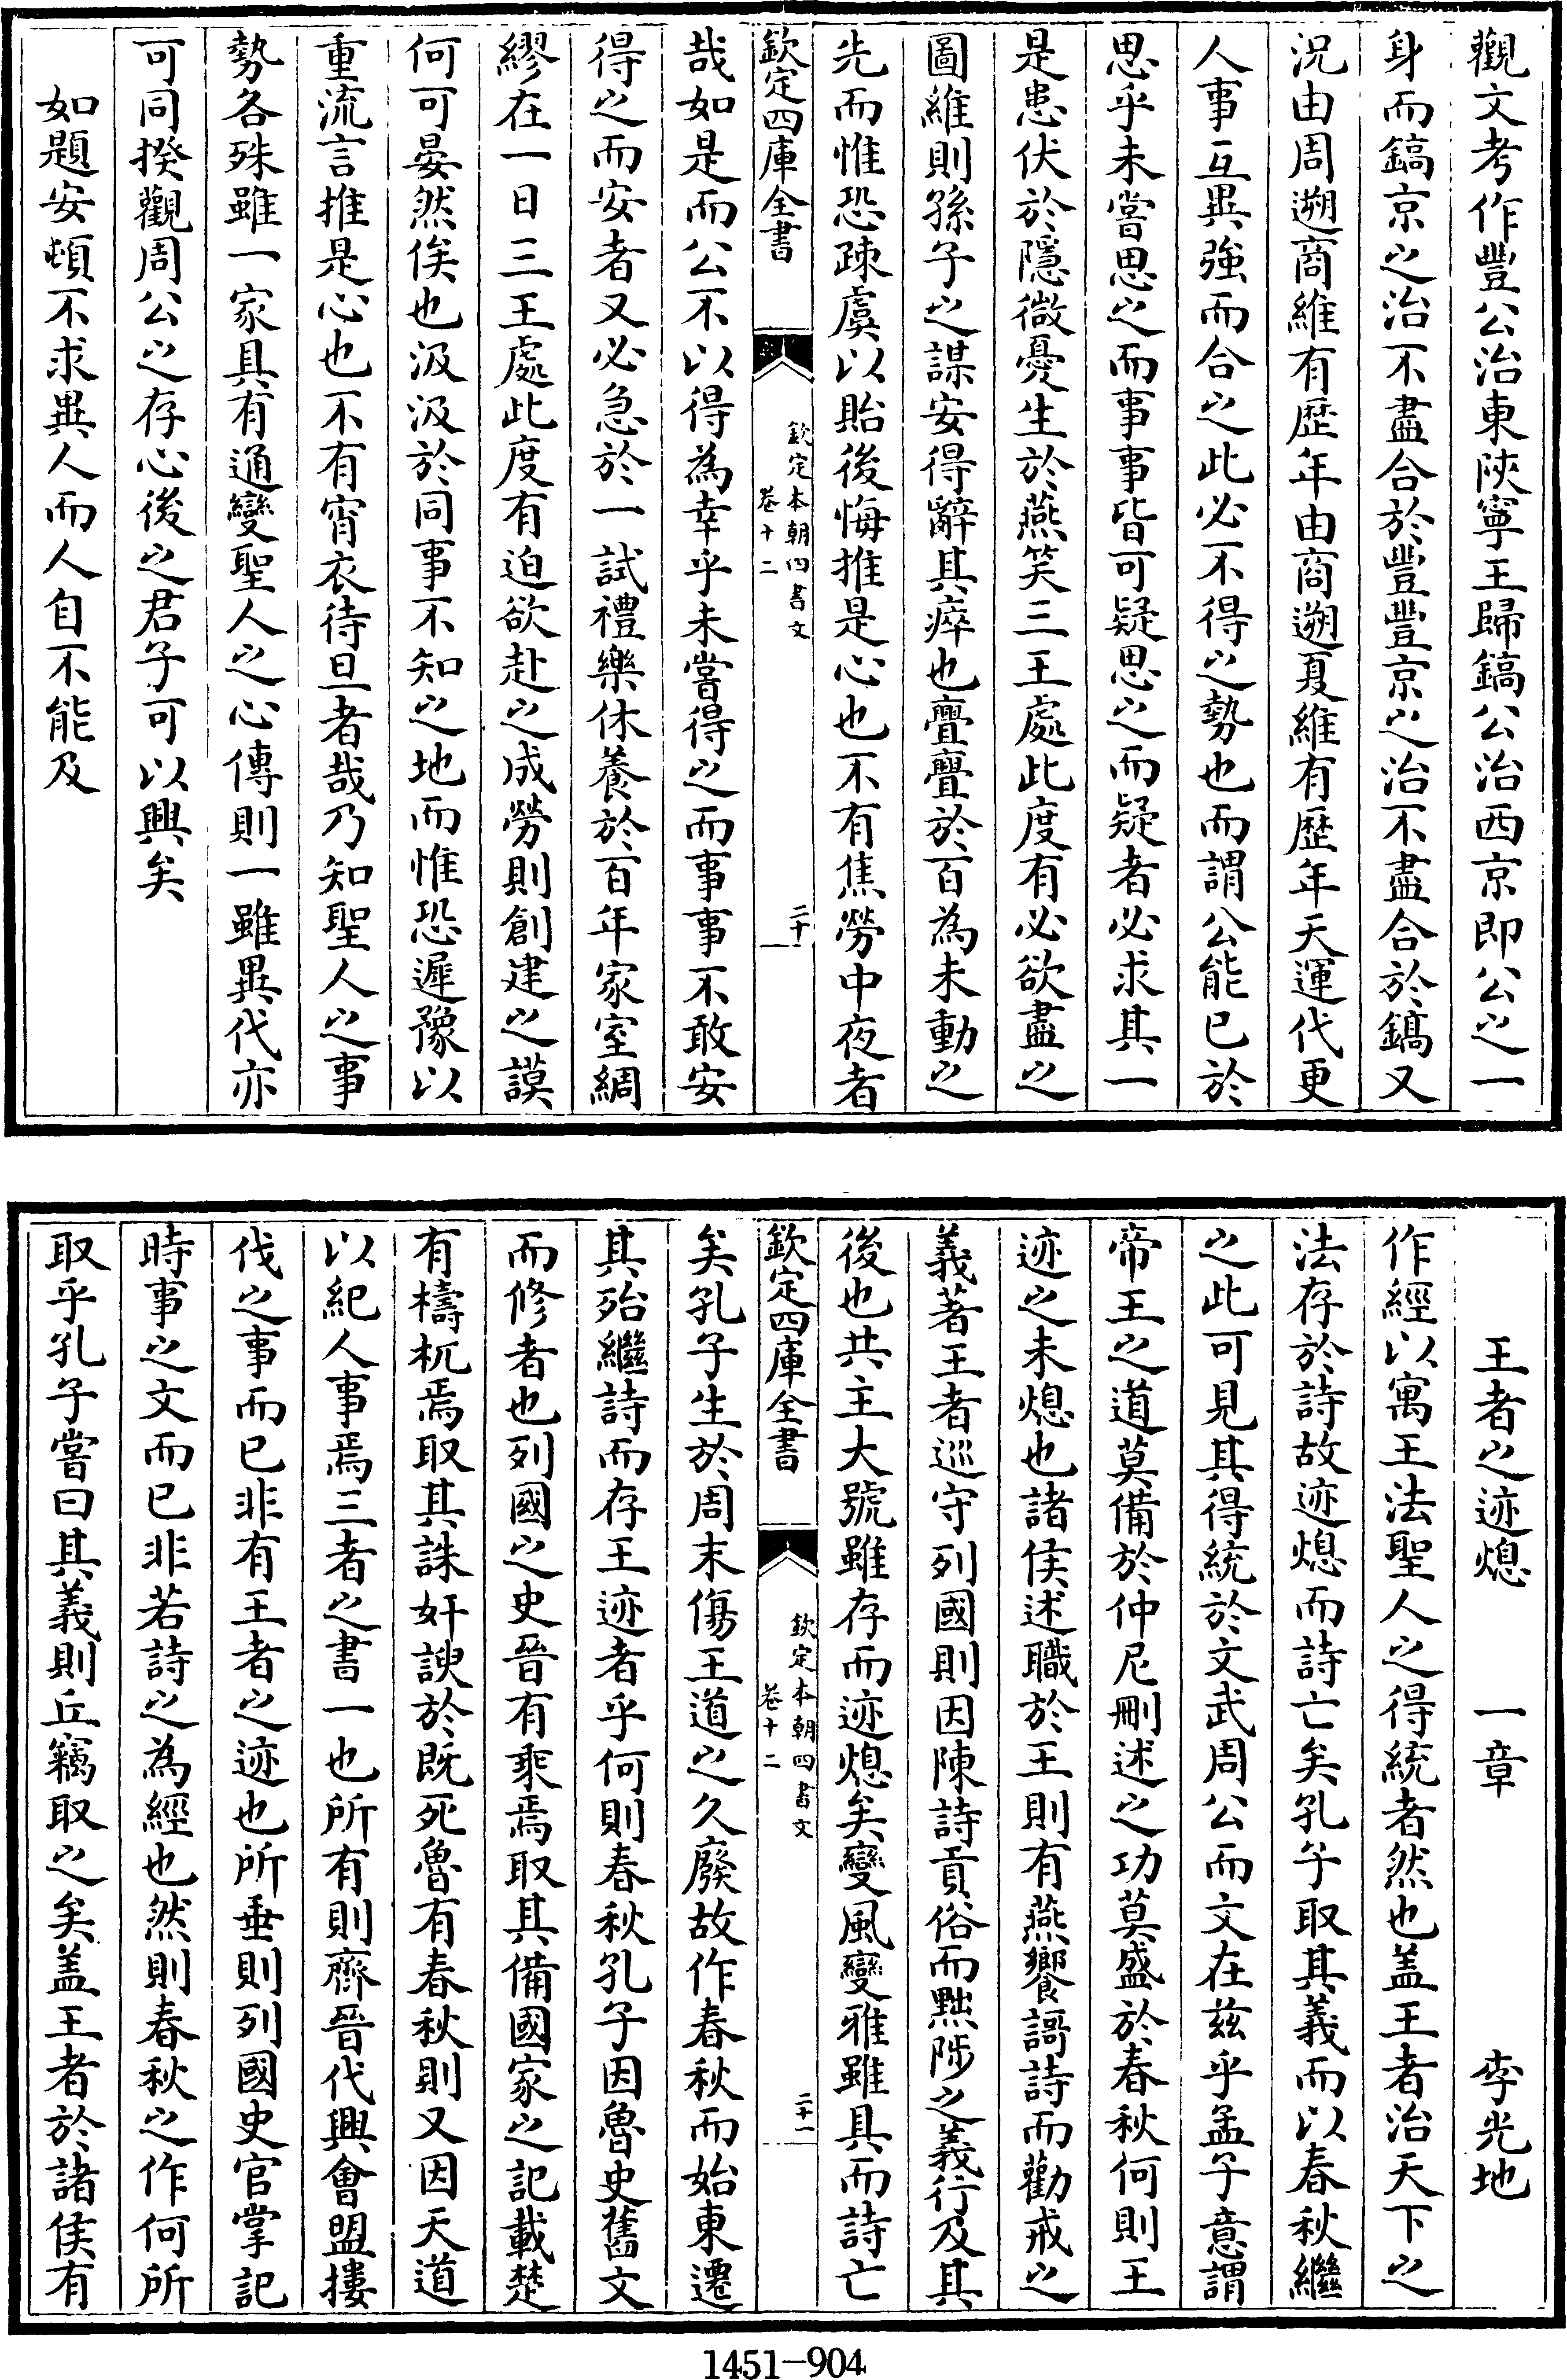 觀文考作豐公治東陜寧王歸鎬公治西京即公之一
身而鎬京之治不盡合於豐豐京之治不盡合於鎬又
況由周遡商維有歴年由商遡夏維有歴年天運代更
人事互異強而合之此必不得之勢也而謂公能已於
思乎未嘗思之而事事皆可疑思之而疑者必求其一
是患伏於隱微憂生於燕笑三王處此度有必欲盡之
圖維則孫子之謀安得辭其瘁也亹亹於百為未動之
先而惟恐疎虞以貽後悔推是心也不有焦勞中夜者
欽定四庫全書
欽定本朝四書文
卷十二
二十
哉如是而公不以得為幸乎未嘗得之而事事不敢安
得之而安者又必急於一試禮樂休養於百年家室綢
繆在一日三王處此度有迫欲赴之成勞則創建之謨
何可晏然俟也汲汲於同事不知之地而惟恐遲豫以
重流言推是心也不有宵衣待旦者哉乃知聖人之事
勢各殊雖一家具有通變聖人之心傳則一雖異代亦
可同揆觀周公之存心後之君子可以興矣
如題安頓不求異人而人自不能及
王者之迹熄 一章 李光地
作經以寓王法聖人之得統者然也盖王者治天下之
法存於詩故迹熄而詩亡矣孔子取其義而以春秋繼
之此可見其得統於文武周公而文在兹乎孟子意謂
帝王之道莫備於仲尼刪述之功莫盛於春秋何則王
迹之未熄也諸侯述職於王則有燕饗謌詩而勸戒之
義著王者巡守列國則因陳詩貢俗而黜陟之義行及其
後也共主大號雖存而迹熄矣變風變雅雖具而詩亡
欽定四庫全書
欽定本朝四書文
卷十二
二十一
矣孔子生於周末傷王道之久廢故作春秋而始東遷
其殆繼詩而存王迹者乎何則春秋孔子因魯史舊文
而修者也列國之史晉有乘焉取其備國家之記載楚
有檮杌焉取其誅奸諛於既死魯有春秋則又因天道
以紀人事焉三者之書一也所有則齊晉代興會盟摟
伐之事而已非有王者之迹也所垂則列國史官掌記
時事之文而已非若詩之為經也然則春秋之作何所
取乎孔子嘗曰其義則丘竊取之矣盖王者於諸侯有
1451-904